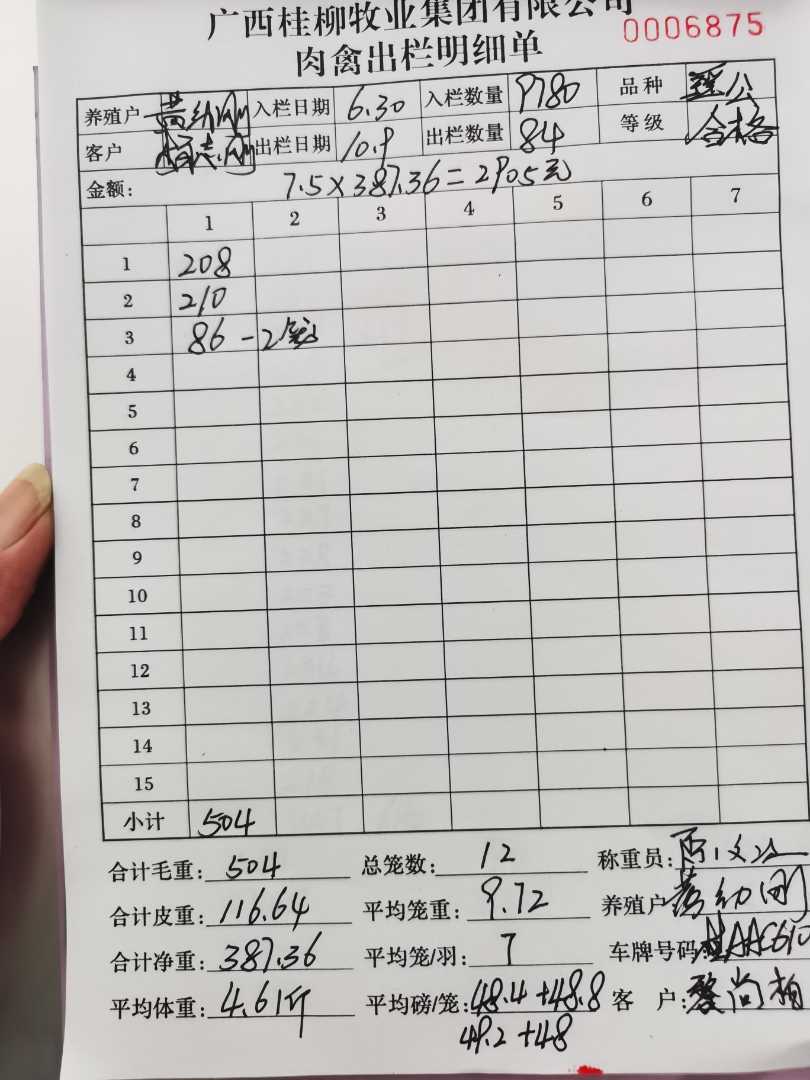 广西桂柳牧业集团有限公司
0006875
肉禽出栏明细单
养殖户 黄幼刚 入栏日期 6.30 入栏数量 9780 品种 公
客户 出栏日期 10.9 出栏数量 84 等级 合格
金额: 7.5×387.36=2905元
1 2 3 4 5 6 7
1 208
2 210
3 86-2笼
4
5
6
7
8
9
10
11
12
13
14
15
小计 504
合计毛重: 504 总笼数: 12 称重员:
合计皮重: 116.64 平均笼重: 9.72 养殖户 黄幼刚
合计净重: 387.36 平均笼/羽: 7 车牌号码: 桂AAC610
平均体重: 4.61斤 平均磅/笼: 48.4+48.8 客 户: 黎尚柏
49.2+48